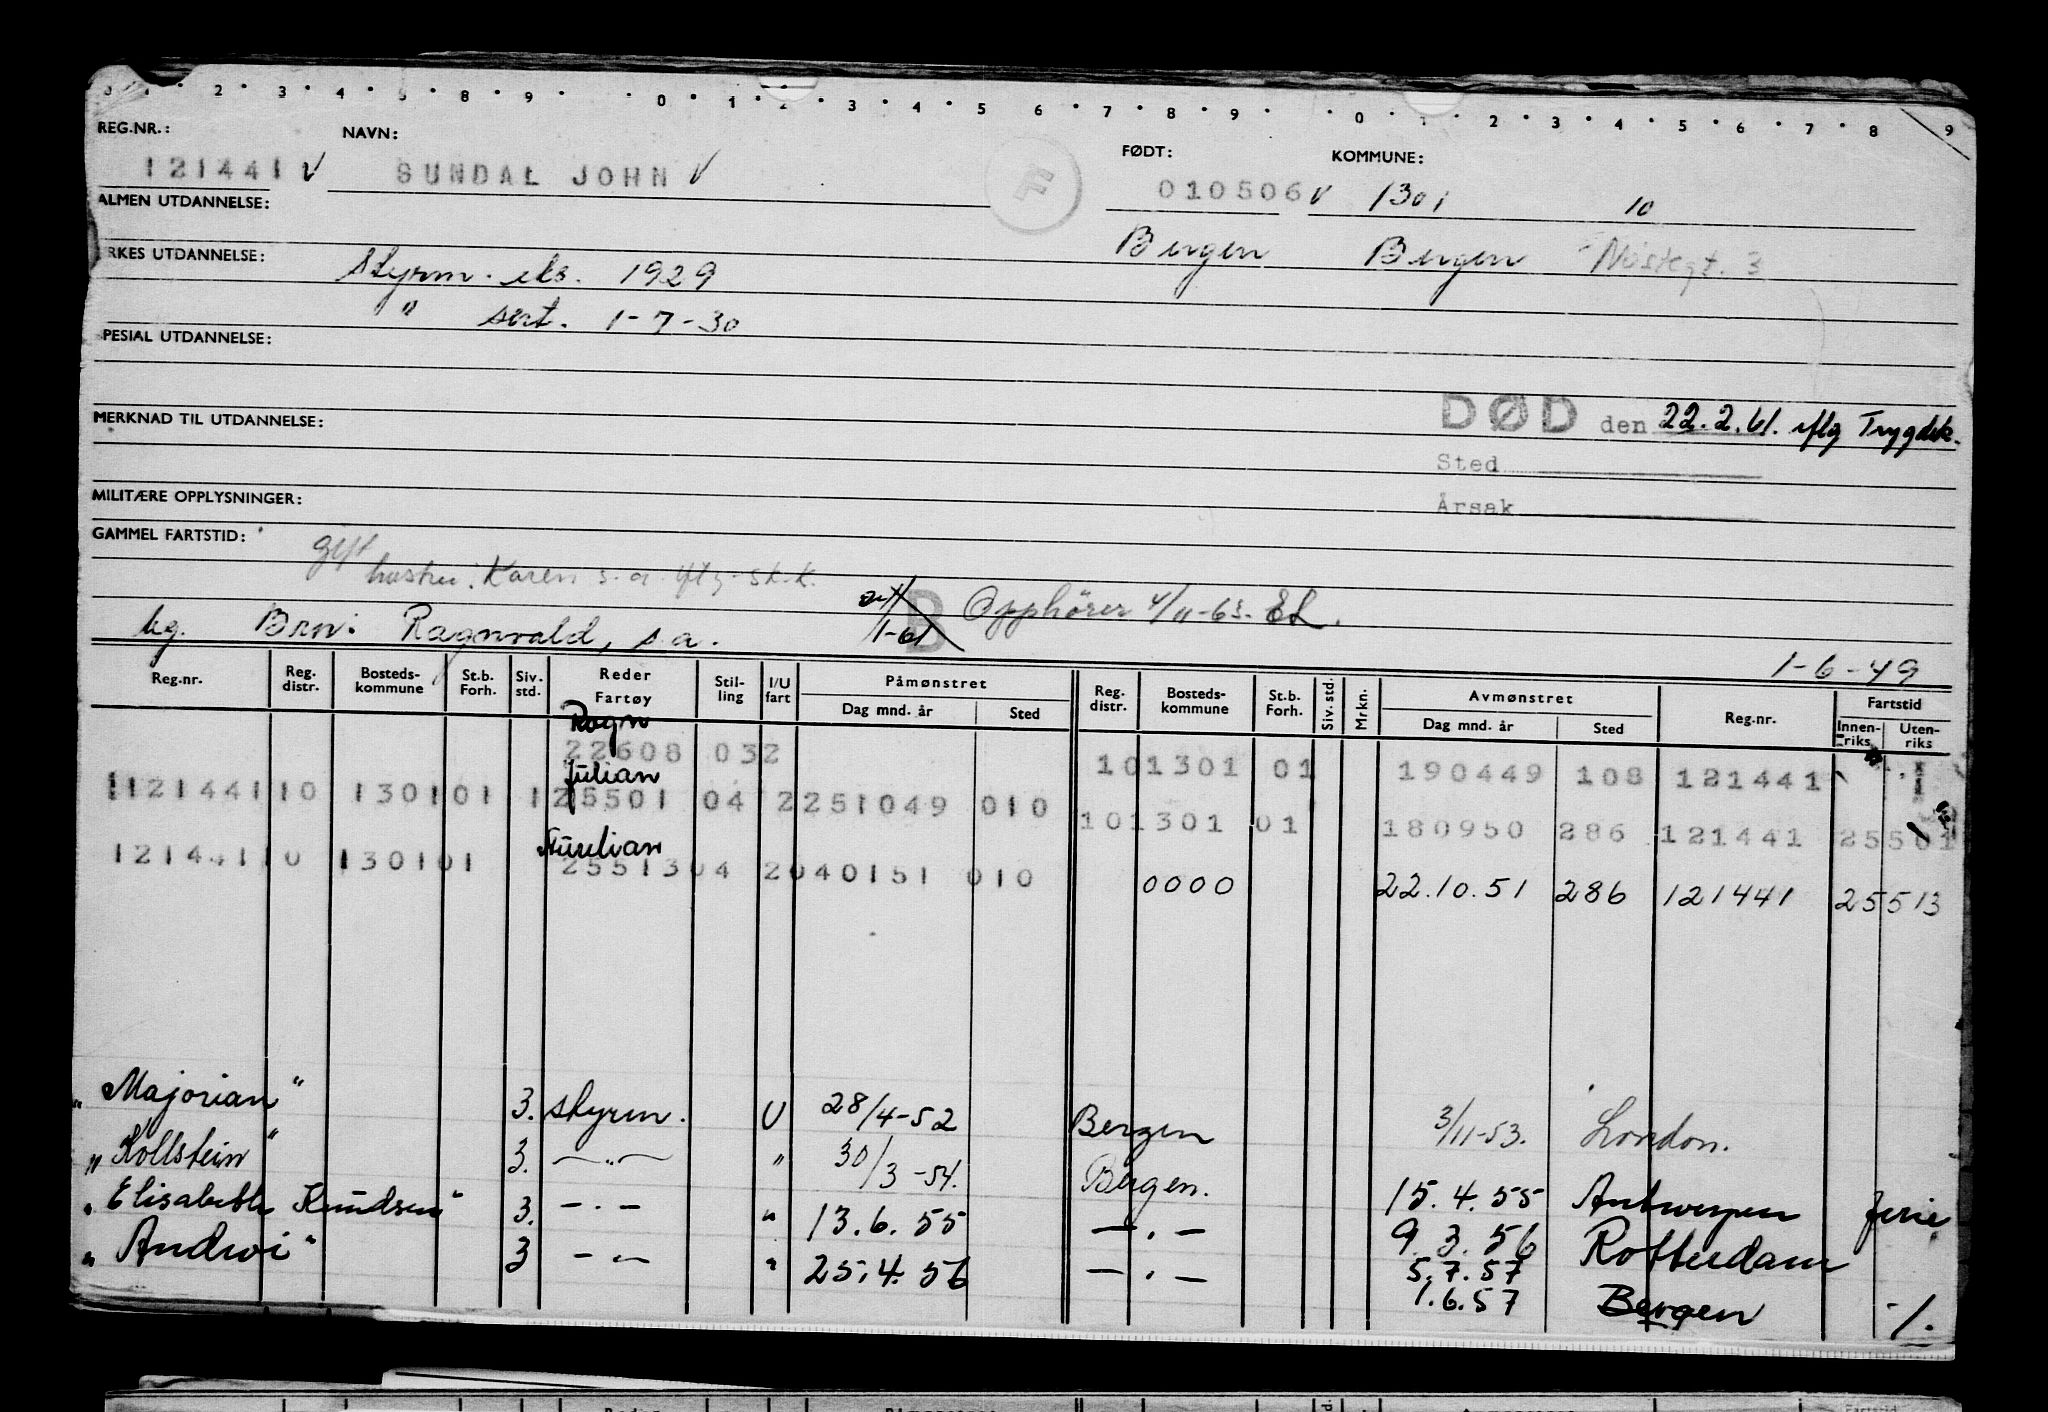 0 1 2 3 4 5 8 9 0 1 2 3 4 5 6 7 8 9 0 1 2 3 4 5 6 7 8 9
REG.NR.: NAVN: FØDT: KOMMUNE:
121441 V SUNDAL JOHN V F 010506 V 1301 10
ALMEN UTDANNELSE: Bergen Bergen Nøstegt. 3
RKES UTDANNELSE: Styrm. eks. 1929
" sert. 1-7-30
PESIAL UTDANNELSE:
MERKNAD TIL UTDANNELSE: DØD den 22.2.61. iflg Trygdek.
Sted
MILITÆRE OPPLYSNINGER: Årsak
GAMMEL FARTSTID: gift
hustru: Karen s.a. iflg. sk.k.
bg. Bror: Ragnvald, s.a. 1-61 B Opphører 4/11-63. EL.
1-6-49
Reg.nr. Reg. distr. Bosteds-kommune St.b. Forh. Siv. std. Reder Fartøy Stil-ling I/U fart Påmønstret Dag mnd. år Sted Reg. distr. Bosteds-kommune St.b. Forh. Siv. std. Mrkn. Avmønstret Dag mnd. år Sted Reg.nr. Fartstid Innen-riks Uten-riks
Ragn
22608 032 101301 01 190449 108 121441
Julian
121441 10 1301 01 1 25501 04 2 251049 010 101301 01 180950 286 121441 25501
121441 10 1301 01 25513 04 2 040151 010 0000 22.10.51 286 121441 25513
" Majorian " 3. styrm. U 28/4-52 Bergen 3/11-53. London.
" Kollstein " 3. — " — " 30/3-54. Bergen. 15.4.55 Antwerpen ferie
" Elisabeth Knudsen " 3. — . — " 13.6.55 — . — 9.3.56 Rotterdam "
" Andwi " 3 — " — " 25.4.56 — . — 5.7.57
1.6.57 Bergen -/.